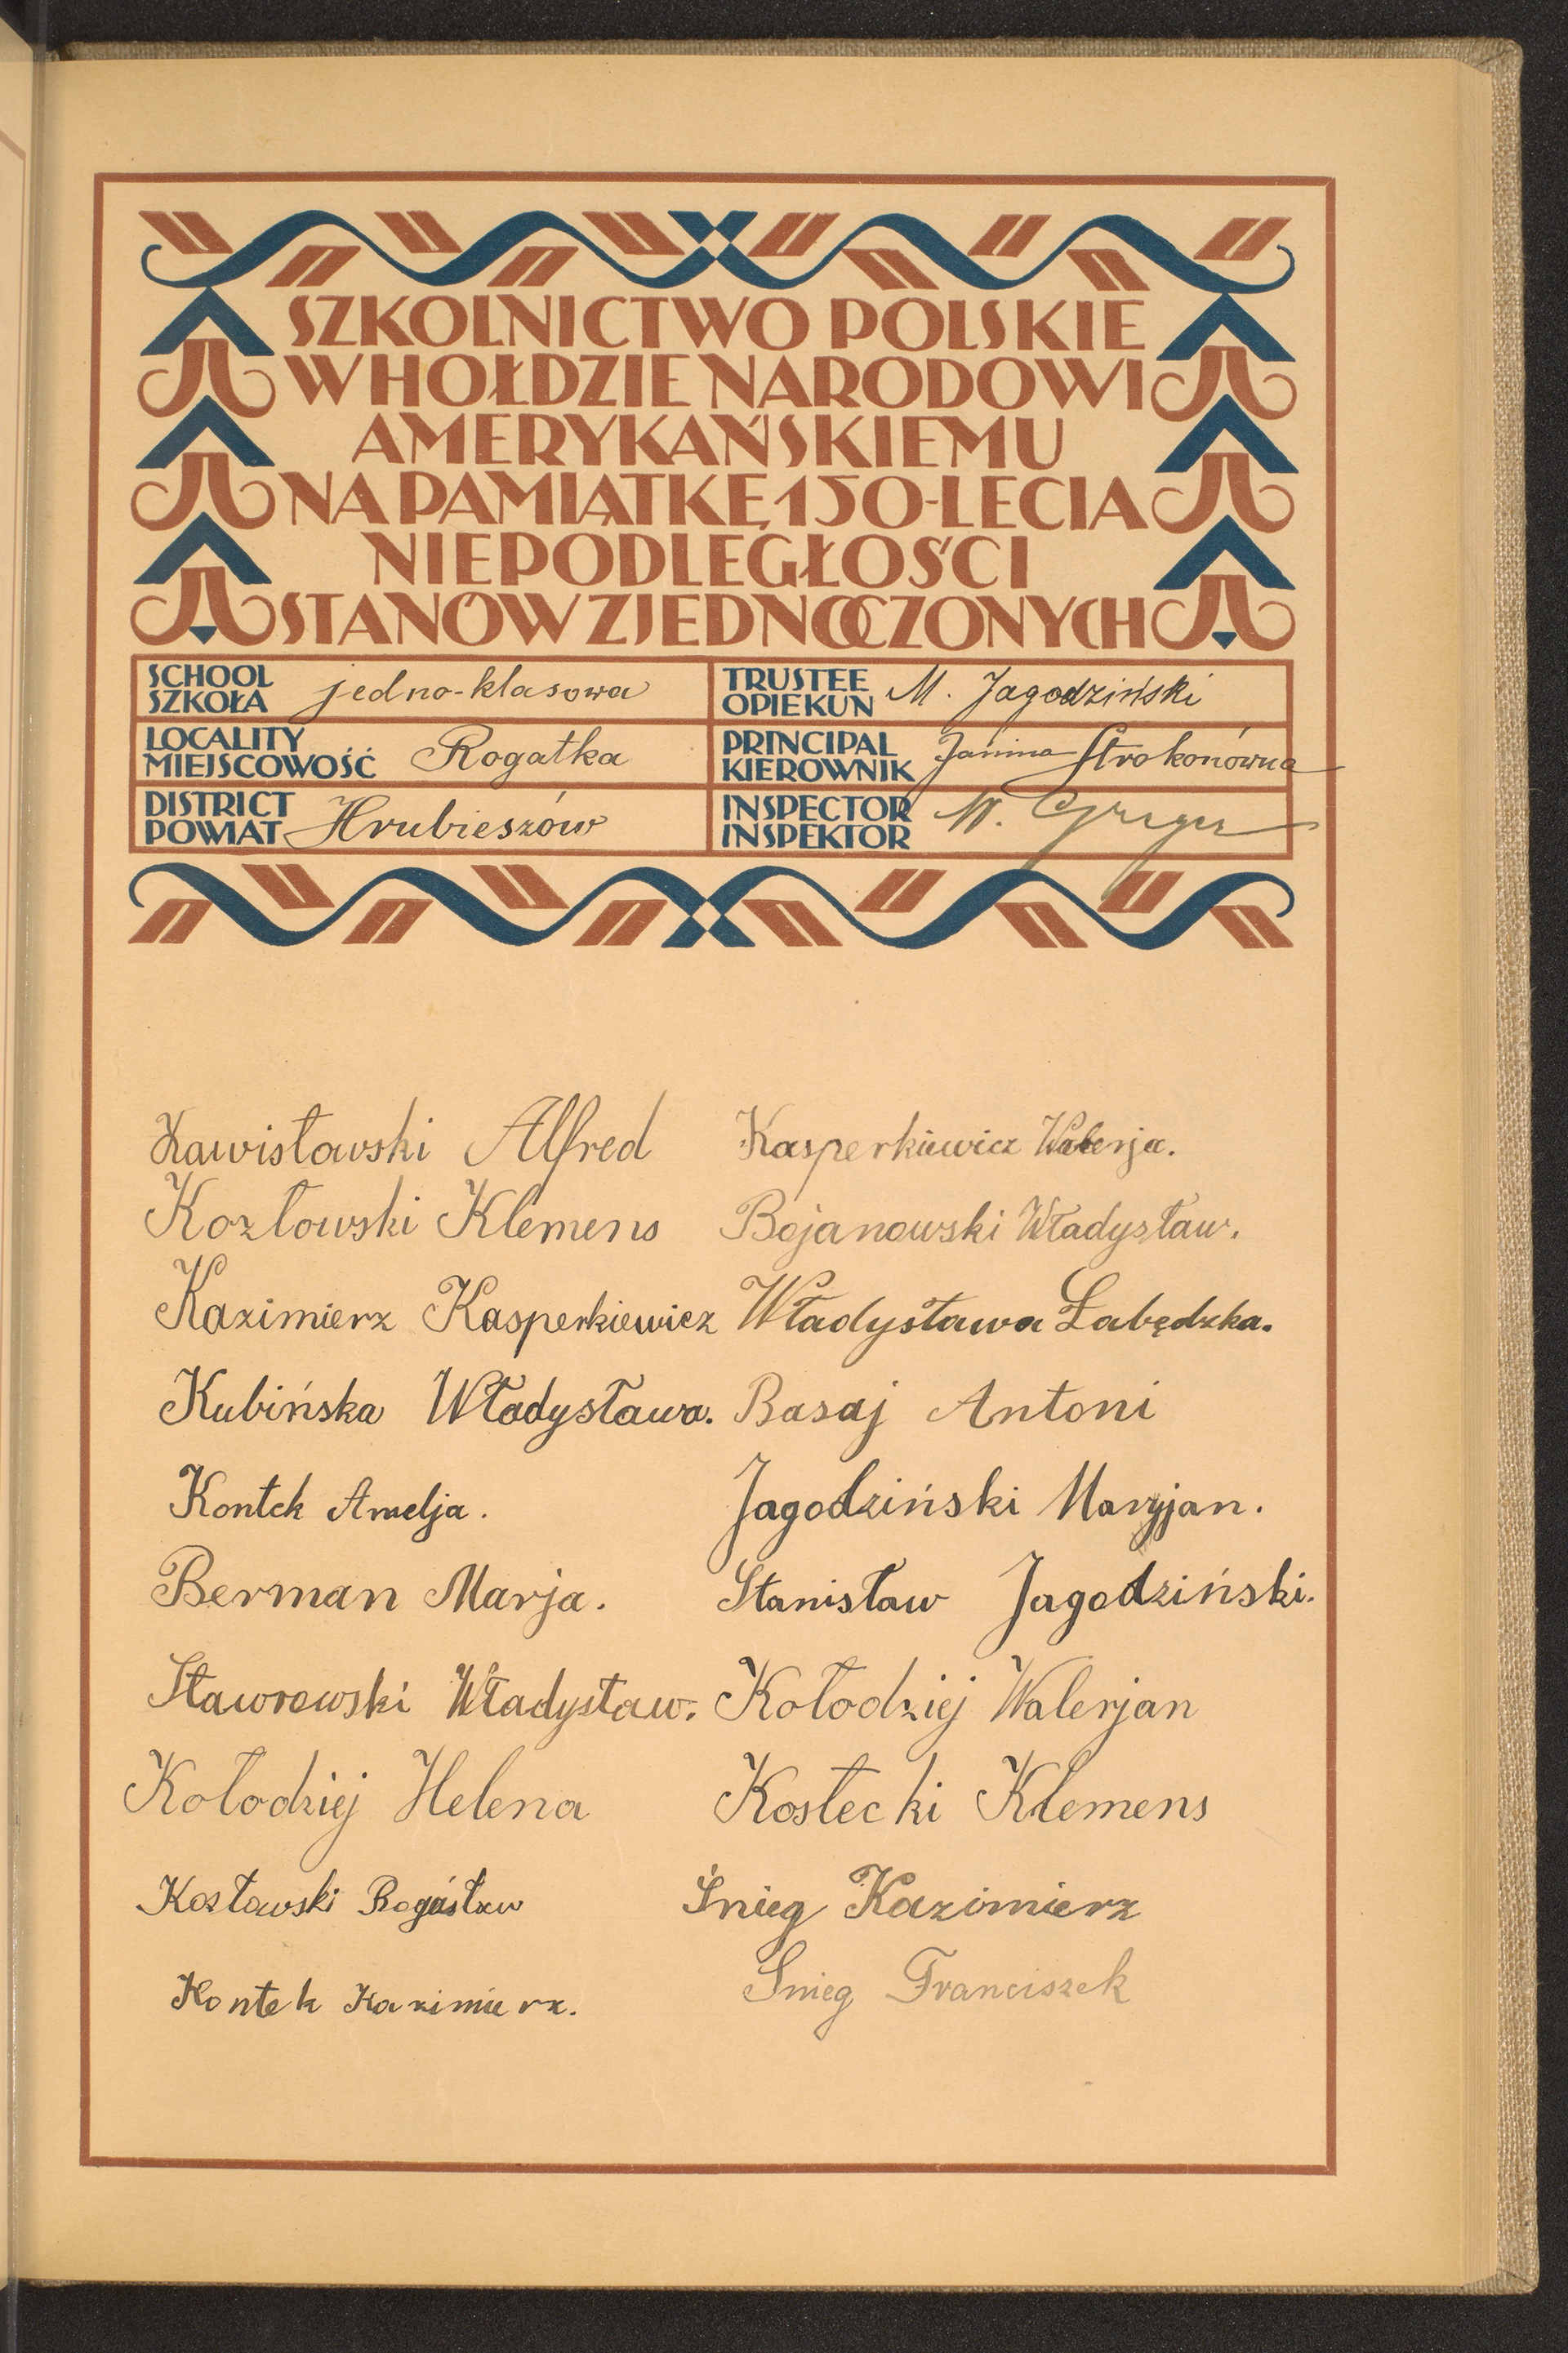 SZKOLNICTWO POLSKIE
W HOŁDZIE NARODOWI
AMERYKAŃSKIEMU
NA PAMIĄTKĘ 150-LECIA
NIEPODLEGŁOŚCI
STANÓW ZJEDNOCZONYCH
SCHOOL
SZKOŁA jedno-klasowa
TRUSTEE
OPIEKUN M. Jagodziński
LOCALITY
MIEJSCOWOŚĆ Rogatka
PRINCIPAL
KIEROWNIK Janina Strokonówna
DISTRICT
POWIAT Hrubieszów
INSPECTOR
INSPEKTOR W.
Zawistawski Alfred
Kozłowski Klemens
Kazimierz Kasperkiewicz
Kubińska Władysława.
Kontek Amelja.
Berman Marja.
Staworowski Władysław.
Kołodziej Helena
Kozławski Bogusław
Kontek Kazimierz.
Kasperkiewicz Walerja.
Bojanowski Władysław.
Władysława Łabędzka.
Basaj Antoni
Jagodziński Maryjan.
Stanisław Jagodziński.
Kołodziej Walerjan
Kostecki Klemens
Śnieg Kazimierz
Snieg Franciszek